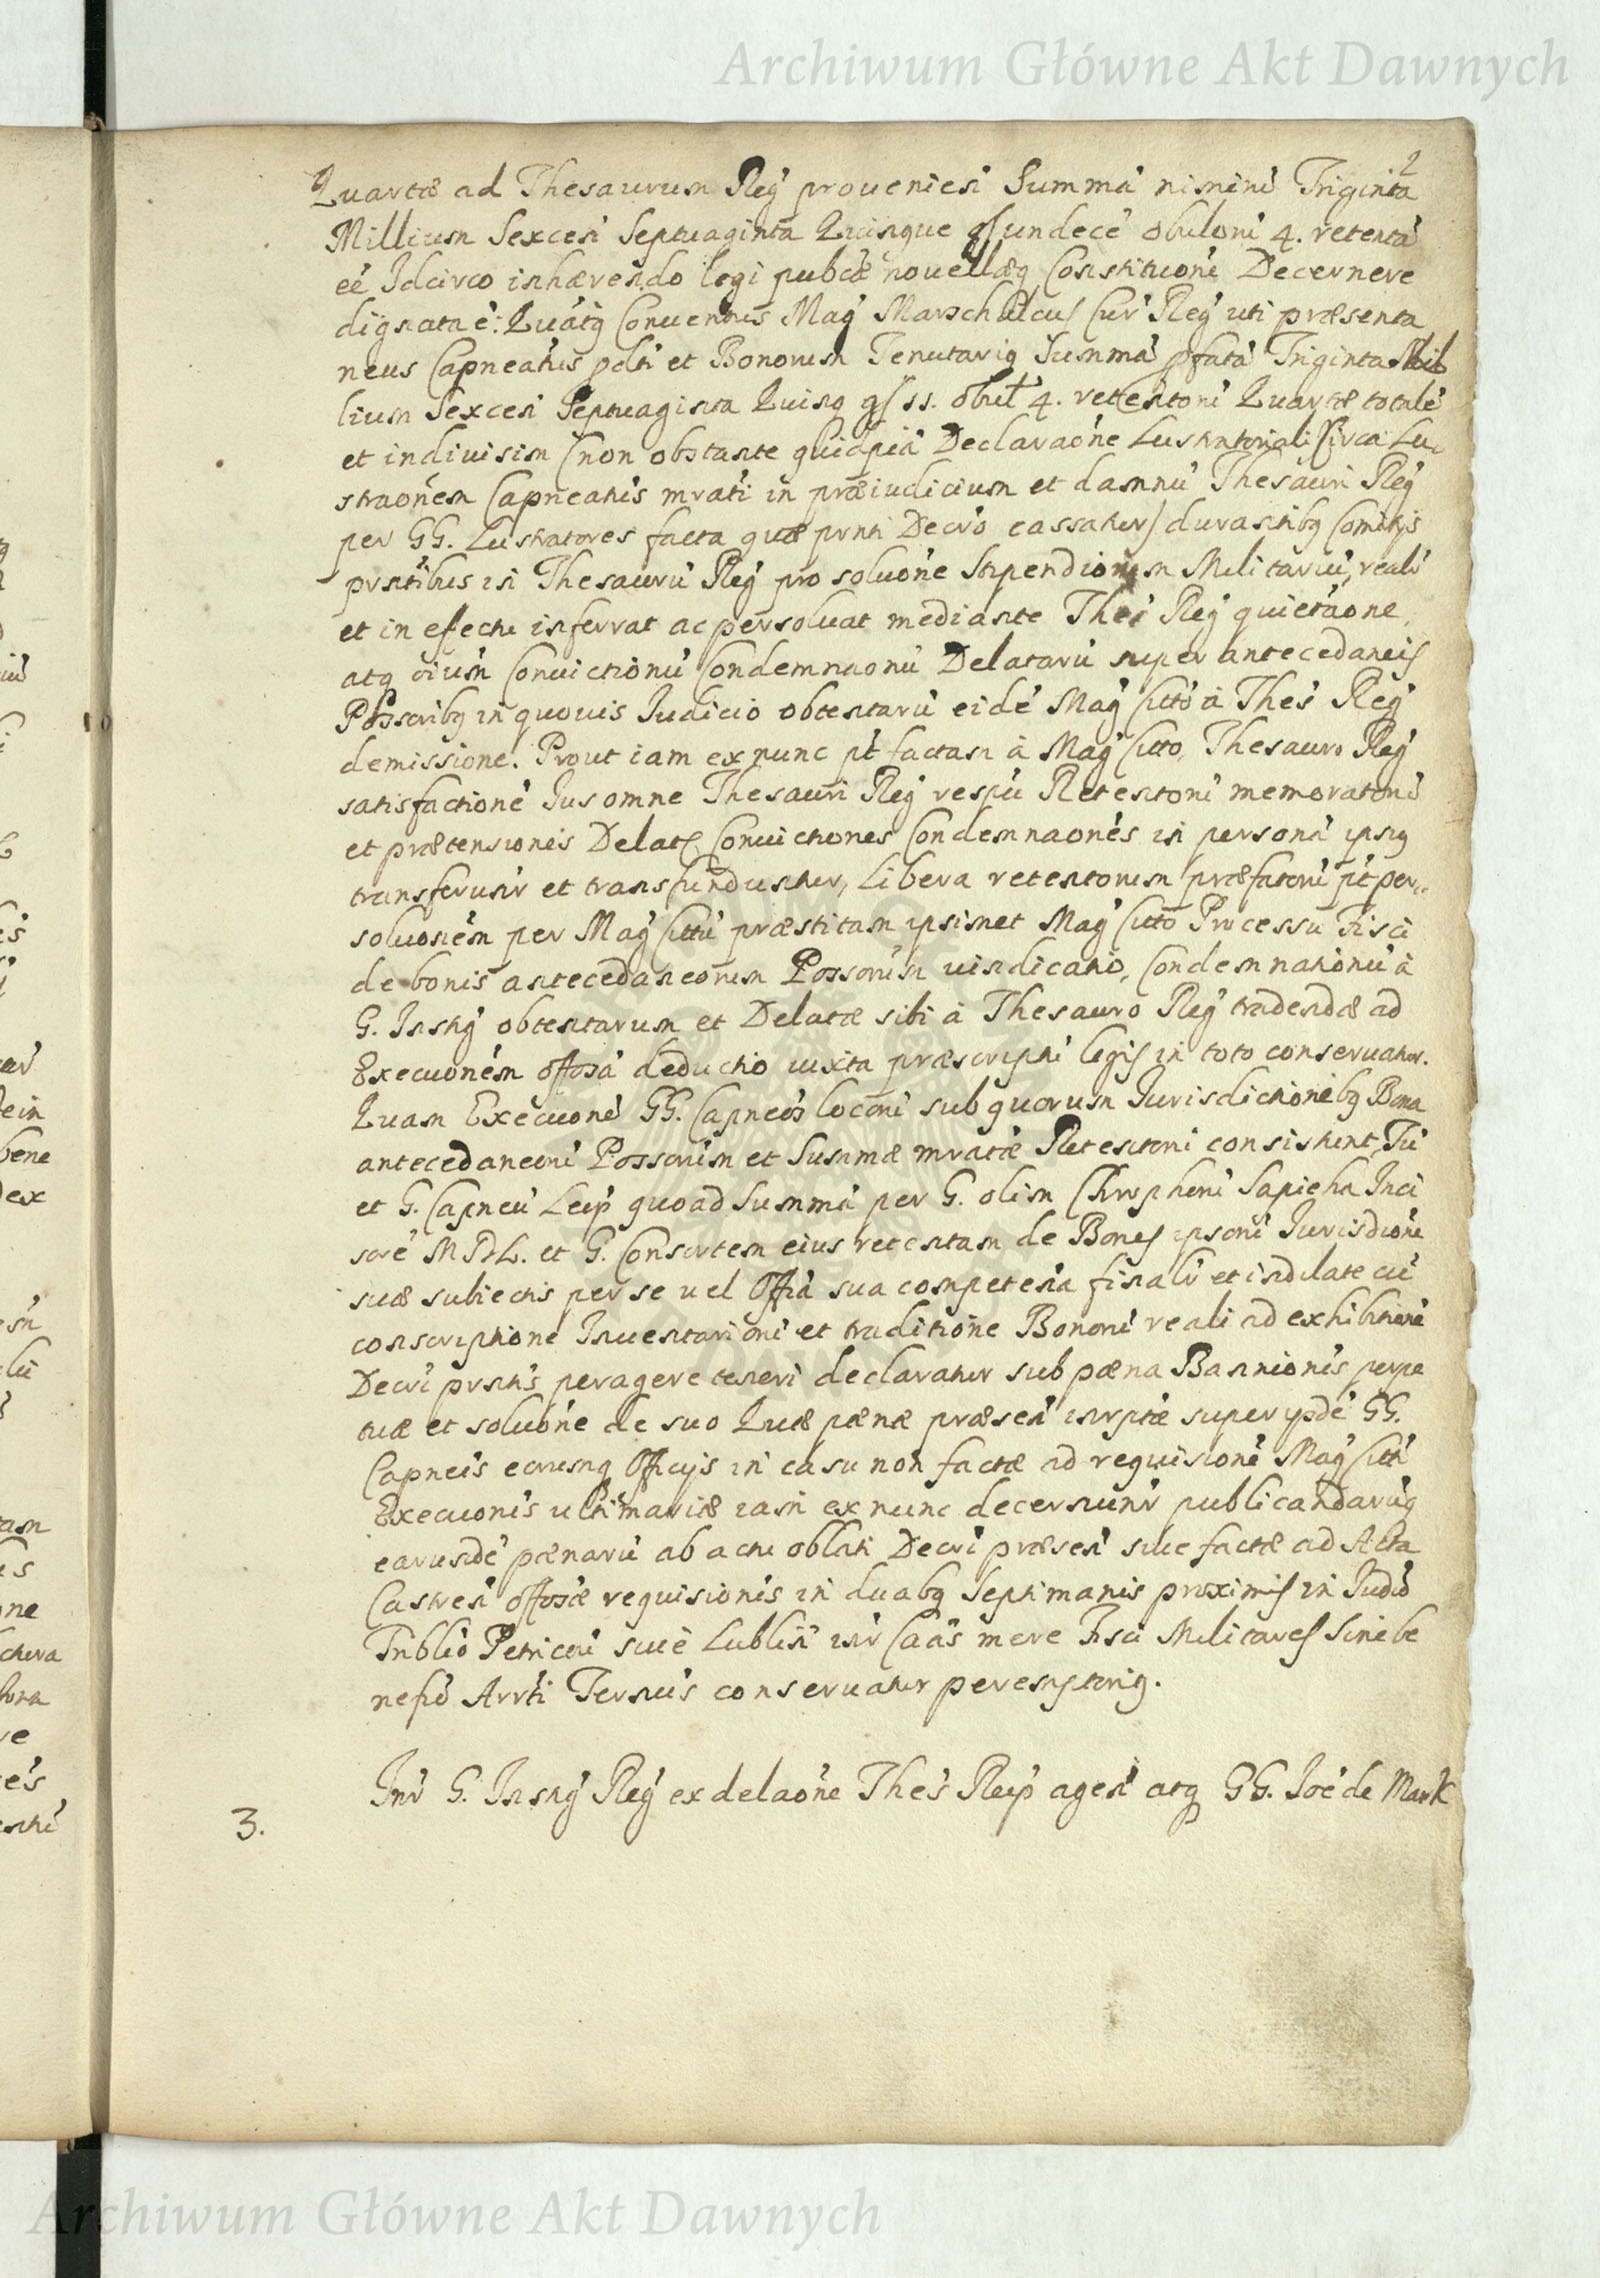 Archiwum Główne Akt Dawnych
2
Quartæ ad Thesaurum Reg̃ proueniesi Summã nimirũ Triginta
Millium Sexcesi Septuaginta Quinque gſ undecẽ obulorũ 4. retentã
eẽ Idcirco inhærendo legi pubcæ nouellæq Constituoni Decernere
dignata ẽ: Quatq Conuentus Mag̃ Marschalcuſ Cur̃ Reg̃ uti præsenta
neus Capneatus pdti et Bonorum Tenutariq Summã pfatã Triginta Mil
lium Sexcesi Septuaginta Quinq gſ 11. obul 4. retentorũ Quartæ totalẽ
et indiuisim (non obstante quidpiã Declaraone Lustratoriali Circa Lu
straonem Capneatus mrati in præiudicium et damnũ Thesauri Reg̃
per GG. Lustratores facta quæ prnti Decro cassatur) durantibq Comitijs
prntibus in Thesaurũ Reg̃ pro soluone Stipendiorum Militariũ, realr
et in efectu inferrat ac persoluat mediante Thes Reg̃ quietaone,
atq oium Conuictionũ Condemnaonũ Delatarũ super antecedaneiſ
Possoribq in quouis Iudicio obtentarũ eidẽ Mag̃ Citto à Thes Reg̃
demissione. Prout iam ex nunc pt factam à Mag̃ Citto, Thesauro Reg̃
satisfactionẽ Ius omne Thesauri Reg̃ respũ Retentorũ memoratorũ
et prætensionis Delat, Conuictiones Condemnaones in personã ipsiq
transferunr et transfunduntur, Libera retentorum præfatorũ pt per
soluonem per Mag̃ Cittũ præstitam ipsimet Mag̃ Citto Processu Fisci
de bonis antecedaneorum Possorum uindicatio, Condemnationũ à
G. Instig̃ obtentarum et Delatæ sibi à Thesauro Reg̃ tradendæ ad
Execuonem offosã deductio iuxta præscriptũ legiſ in toto conseruatur.
Quam Execuonẽ GG. Capneos locorũ sub quorum Iurisdictionibq Bona
antecedaneorũ Possorum et Summæ mratæ Retentorũ consistunt, Tũ
et G. Capneũ Leip quoad Summã per G. olim Chrophorũ Sapieha Inci
sorẽ MDL. et G. Consortem eius retentam de Boniſ ipsorũ Iurisdioni
suæ subiectis per se uel Offia sua competentia finalr et indilate cũ
conscriptione Inuentariorũ et traditione Bonorũ reali ad exhibitionẽ
Decri prntis peragere teneri declaratur sub pæna Bannionis perpe
tuæ et soluone de suo Qutæ pænæ præsen insrptæ super ijsdẽ GG.
Capneis eorumq Officijs in casu non factæ ad requisionẽ Mag̃ Citti
Execuonis ultimariæ iam ex nunc decernunr publicandarũq
earundẽ pænarũ ab actu oblati Decri præsen siue factæ ad Acta
Castren offosæ requisionis in duabq Septimanis proximiſ in Iudio
Triblio Petricoũ siue Lublin inr Caas mere Fisci Militareſ Sine be
nefio Arrti Terminus conseruatur peremptoriq.
3.
Inr G. Instig̃ Reg̃ ex delaone Thes Reip agen atq GG. Ioe de Mark
Archiwum Główne Akt Dawnych